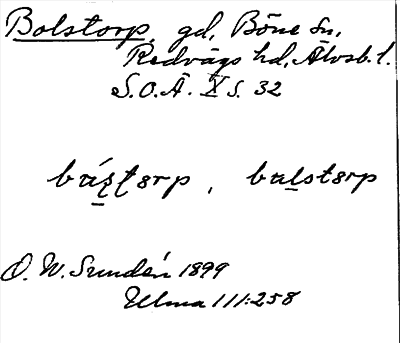 Bolstorp, gd, Böne sn,
Redvägs hd, Älvsb. l.
S.O.Ä. X s. 32
båʂʈɵrp, bålstɵrp
O. W. Sundén 1899
Ulma 111:258